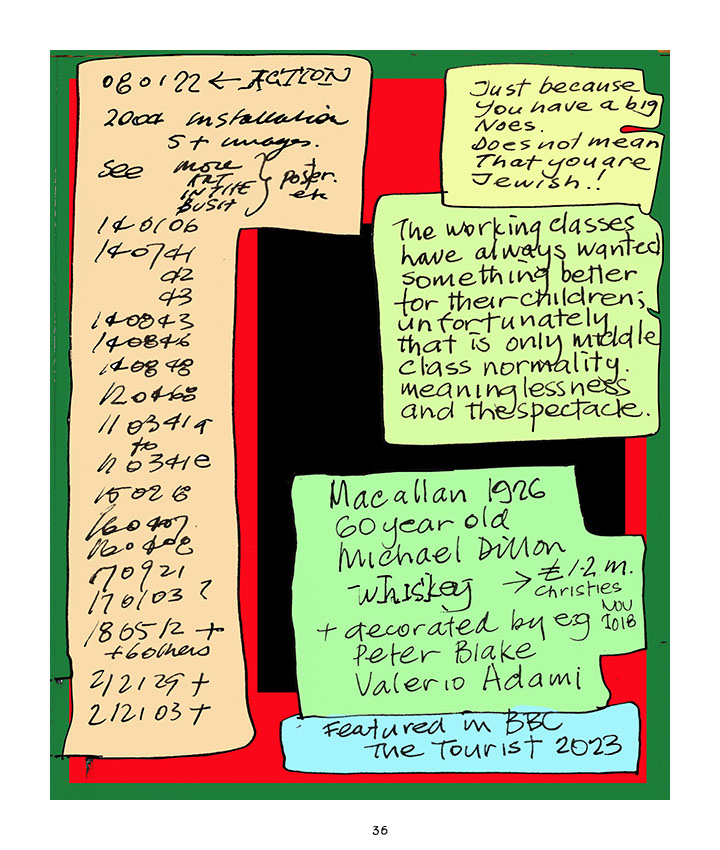 080122 ← ACTION
2004 installation
5+ images.
see more
ART
IN THE
BUSH
poster.
etc
140106
140741
42
43
140843
140846
140848
120468
110341a
to
110341e
15026
160407.
160408
170921
170103?
180512 +
+ 60thers
212129 +
212103 +
Just because
you have a big
Noes.
Does not mean
That you are
Jewish.!
The working classes
have always wanted
something better
for their children;
unfortunately
that is only middle
class normality.
meaninglessness
and the spectacle.
Macallan 1926
60 year old
Michael Dillon
whiskey → £1.2 m.
christies
NOV
2018
+ decorated by eg
Peter Blake
Valerio Adami
Featured in BBC
The Tourist 2023
36